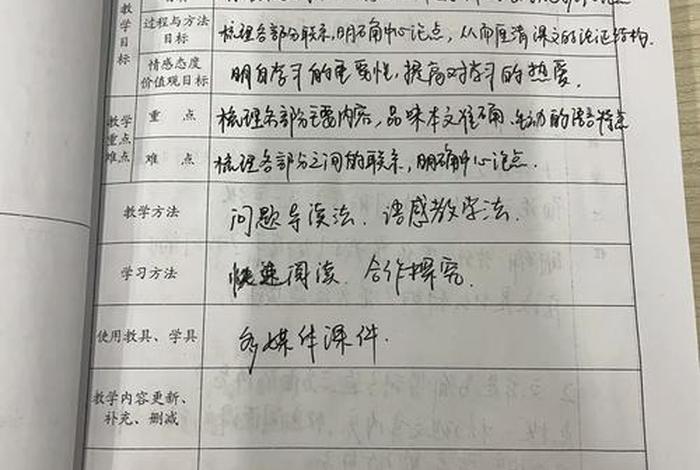 教学目标
过程与方法目标
梳理各部分联系,明确中心论点,从而厘清课文的论证结构.
情感态度价值观目标
明白学习的重要性,提高对学习的热爱.
教学重点难点
重 点
梳理各部分主要内容,品味本文准确、生动的语言特点
难 点
梳理各部分之间的联系,明确中心论点.
教学方法
问题导读法、语感教学法.
学习方法
快速阅读、合作探究.
使用教具、学具
多媒体课件.
教学内容更新、
补充、删减